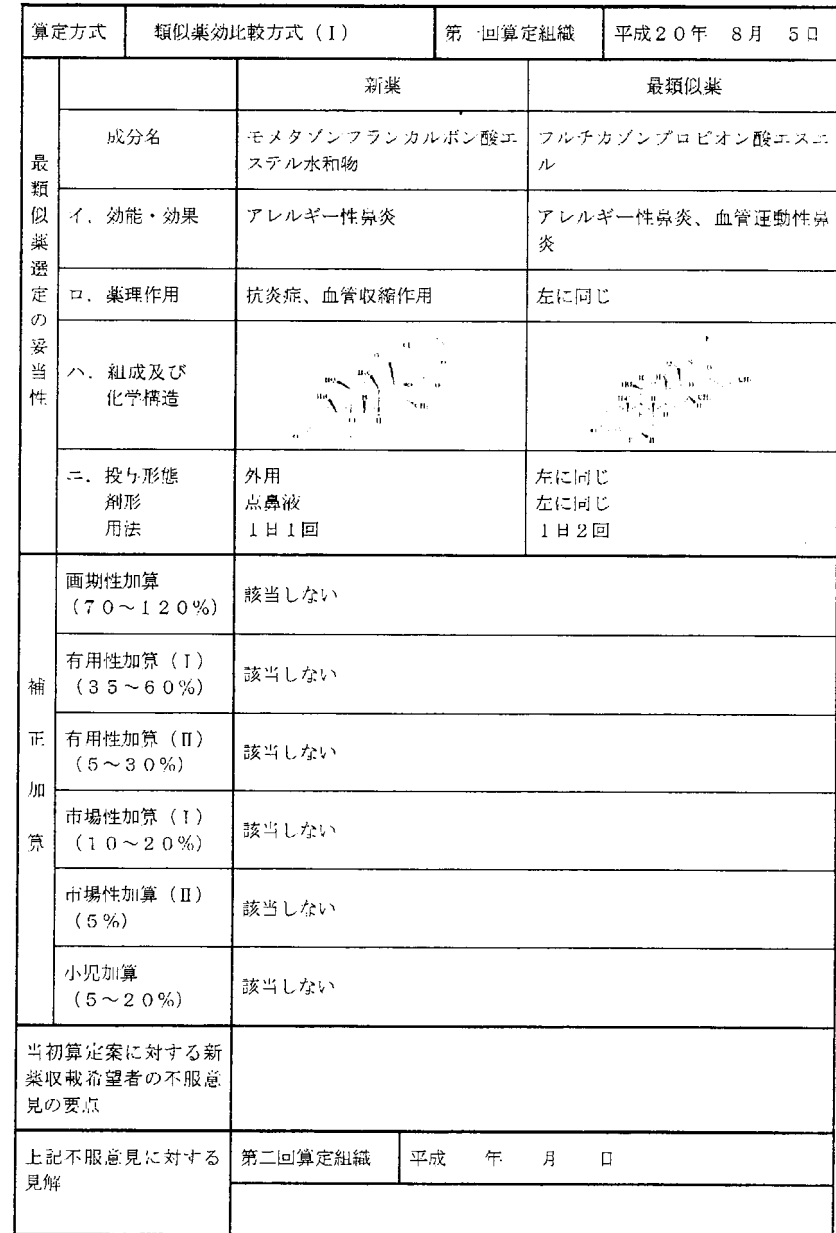 算定方式 類似薬効比較方式（Ⅰ） 第一回算定組織 平成２０年 ８月 ５日
最類似薬選定の妥当性
新薬 最類似薬
成分名
モメタゾンフランカルボン酸エ
ステル水和物
フルチカゾンプロピオン酸エステ
ル
イ．効能・効果
アレルギー性鼻炎
アレルギー性鼻炎、血管運動性鼻
炎
ロ．薬理作用 抗炎症、血管収縮作用 左に同じ
ハ．組成及び
化学構造
ニ．投与形態 外用 左に同じ
剤形 点鼻液 左に同じ
用法 １日１回 １日２回
補正加算
画期性加算
（７０～１２０％）
該当しない
有用性加算（Ⅰ）
（３５～６０％）
該当しない
有用性加算（Ⅱ）
（５～３０％）
該当しない
市場性加算（Ⅰ）
（１０～２０％）
該当しない
市場性加算（Ⅱ）
（５％）
該当しない
小児加算
（５～２０％）
該当しない
当初算定案に対する新
薬収載希望者の不服意
見の要点
上記不服意見に対する
見解
第二回算定組織 平成 年 月 日